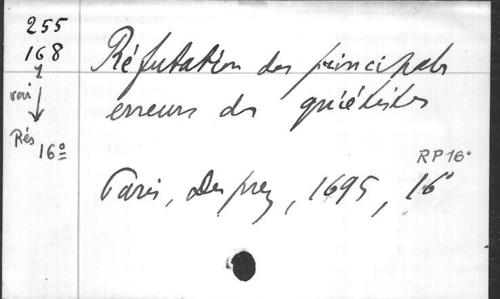 255
168
1
voir
↓
Rés
16º
Réfutation des principales
erreurs des quiétistes
RP16º
Paris, Desprez, 1695, 16º